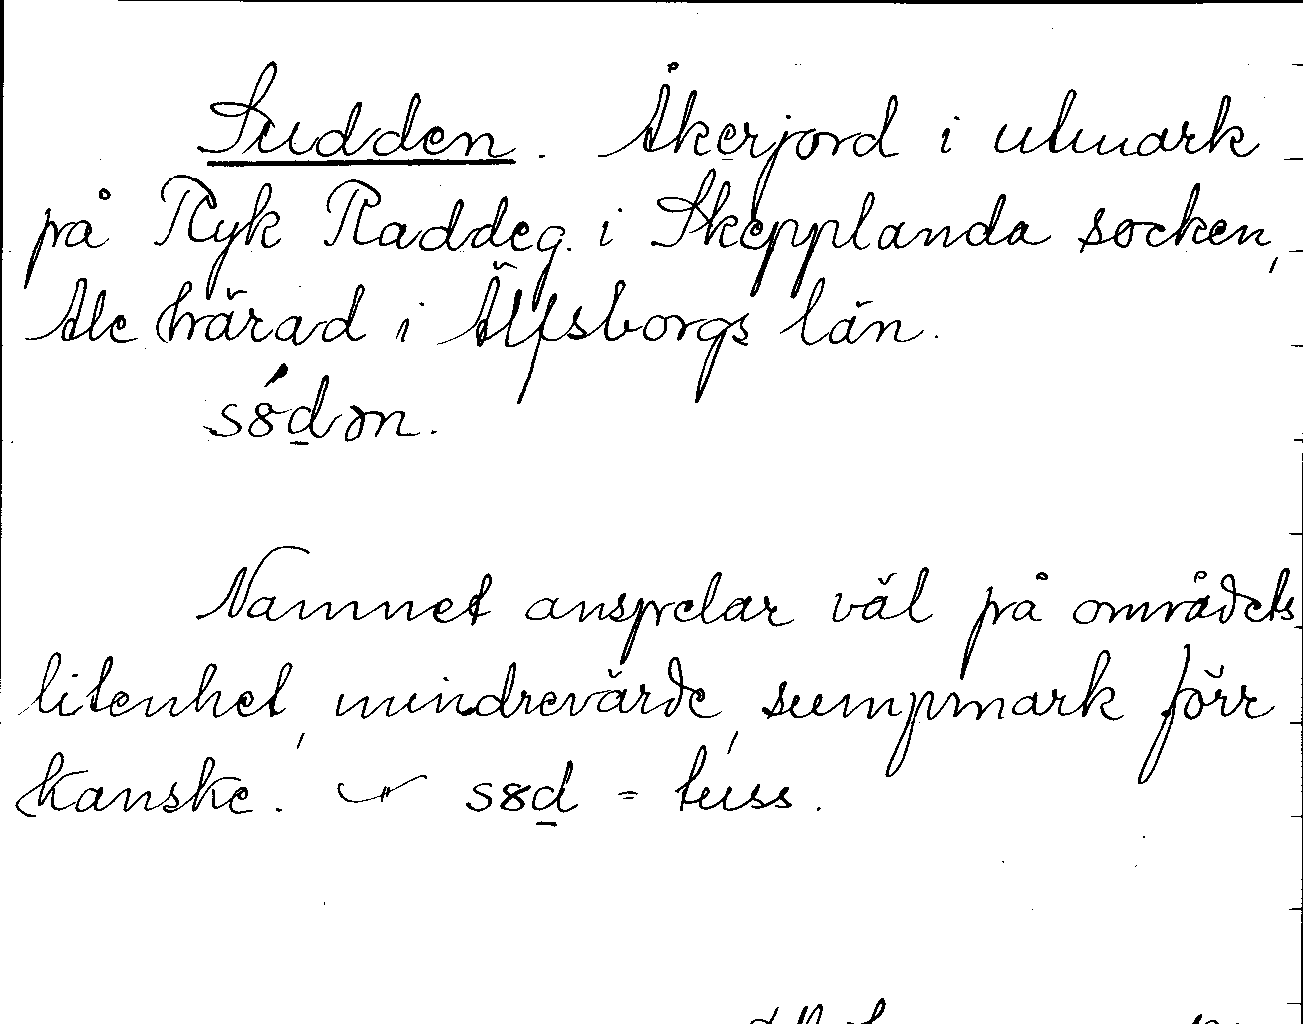 Sudden. Åkerjord i utmark
på Ryk Raddeg. i Skepplanda socken,
Ale härad i Älfsborgs län.
s8́d̲ən.
Namnet anspelar väl på området̲s
litenhet, mindrevärde, sumpmark förr
kanske. s8d̲ = tuss.